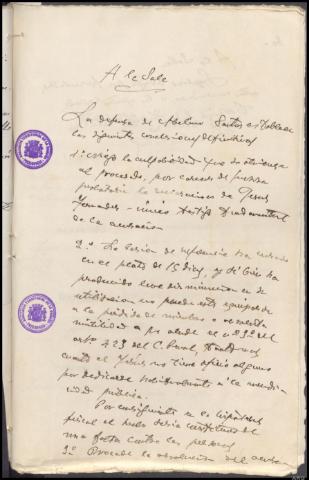 A la Sala
La defensa de Abelino Santos establece
las siguientes conclusiones definitivas
1ª Niego la culpabilidad que se atribuye
al procesado, por carecer de fuerza
probatoria la declaracion de Jesus
Fernandez - unico testigo fundamental
de la acusación
2ª La lesion de referencia ha curado
en el plazo de 15 dias, y si bien ha
producido leve disminucion en la
utilizacion no puede esta equipararse
a la perdida de miembro o
inutilidad a que alude el nº 3º del
artº 423 del C. Penal,
cuanto el Jesús no tiene oficio alguno
por dedicarse habitualmente a la mendi-
cidad pública.
Por consiguiente en la hipotesis
fiscal el hecho seria constitutivo de
una falta contra las personas
3ª Procede la absolucion del